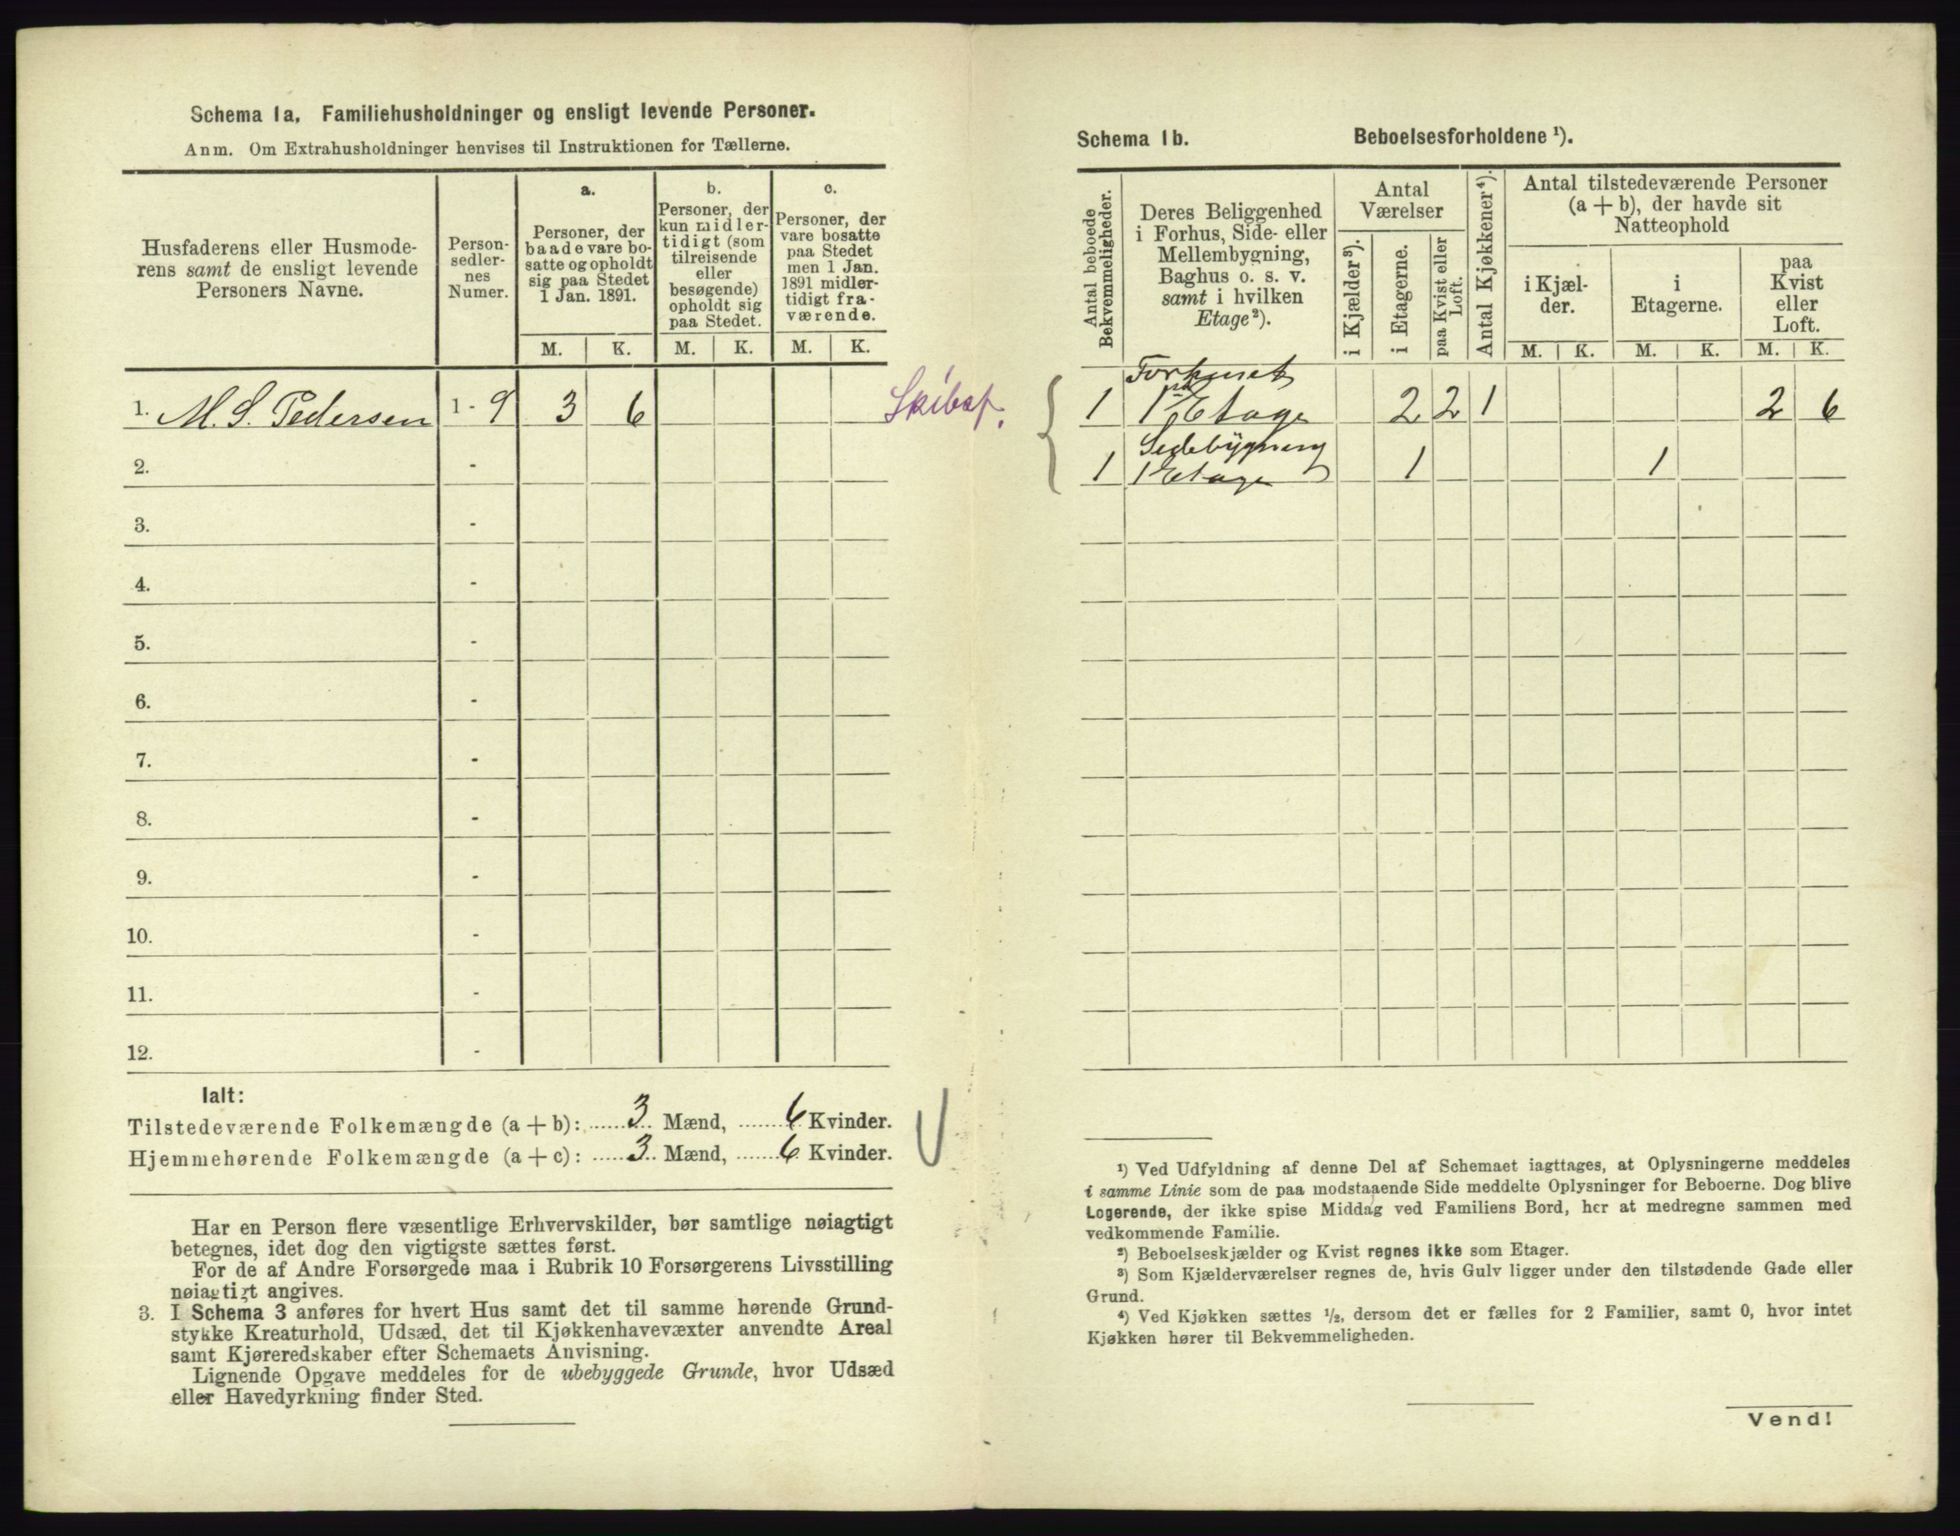 Schema 1a. Familiehusholdninger og ensligt levende Personer.
Anm. Om Extrahusholdninger henvises til Instruktionen for Tællerne.
Husfaderens eller Husmode-
rens samt de ensligt levende
Personers Navne.
Person-
sedler-
nes
Numer.
a.
Personer, der
baade vare bo-
satte og opholdt
sig paa Stedet
1 Jan. 1891.
b.
Personer, der
kun midler-
tidigt (som
tilreisende
eller
besøgende)
opholdt sig
paa Stedet.
c.
Personer, der
vare bosatte
paa Stedet
men 1 Jan.
1891 midler-
tidigt fra-
værende.
M. K. M. K. M. K.
1. M. S. Pedersen 1 - 9 3 6
2. -
3. -
4. -
5. -
6. -
7. -
8. -
9. -
10. -
11. -
12. -
Ialt:
Tilstedeværende Folkemængde (a + b): 3 Mænd, 6 Kvinder.
Hjemmehørende Folkemængde (a + c): 3 Mænd, 6 Kvinder.
Har en Person flere væsentlige Erhvervskilder, bør samtlige nøiagtigt
betegnes, idet dog den vigtigste sættes først.
For de af Andre Forsørgede maa i Rubrik 10 Forsørgerens Livsstilling
nøiagtigt angives.
3. I Schema 3 anføres for hvert Hus samt det til samme hørende Grund-
stykke Kreaturhold, Udsæd, det til Kjøkkenhavevæxter anvendte Areal
samt Kjøreredskaber efter Schemaets Anvisning.
Lignende Opgave meddeles for de ubebyggede Grunde, hvor Udsæd
eller Havedyrkning finder Sted.
Schema 1b. Beboelsesforholdene ¹).
Antal beboede
Bekvemmeligheder.
Deres Beliggenhed
i Forhus, Side- eller
Mellembygning,
Baghus o. s. v.
samt i hvilken
Etage²).
Antal
Værelser
i Kjælder³).
i Etagerne.
paa Kvist eller
Loft.
Antal Kjøkkener⁴).
Antal tilstedeværende Personer
(a + b), der havde sit
Natteophold
i Kjæl-
der.
i
Etagerne.
paa
Kvist
eller
Loft.
M. K. M. K. M. K.
Forhuset
1 1 Etage 2 2 1 2 6
Sedebygning
1 1 Etage 1 1
¹) Ved Udfyldning af denne Del af Schemaet iagttages, at Oplysningerne meddeles
i samme Linie som de paa modstaaende Side meddelte Oplysninger for Beboerne. Dog blive
Logerende, der ikke spise Middag ved Familiens Bord, her at medregne sammen med
vedkommende Familie.
²) Beboelseskjælder og Kvist regnes ikke som Etager.
³) Som Kjælderværelser regnes de, hvis Gulv ligger under den tilstødende Gade eller
Grund.
⁴) Ved Kjøkken sættes ½, dersom det er fælles for 2 Familier, samt 0, hvor intet
Kjøkken hører til Bekvemmeligheden.
Vend!